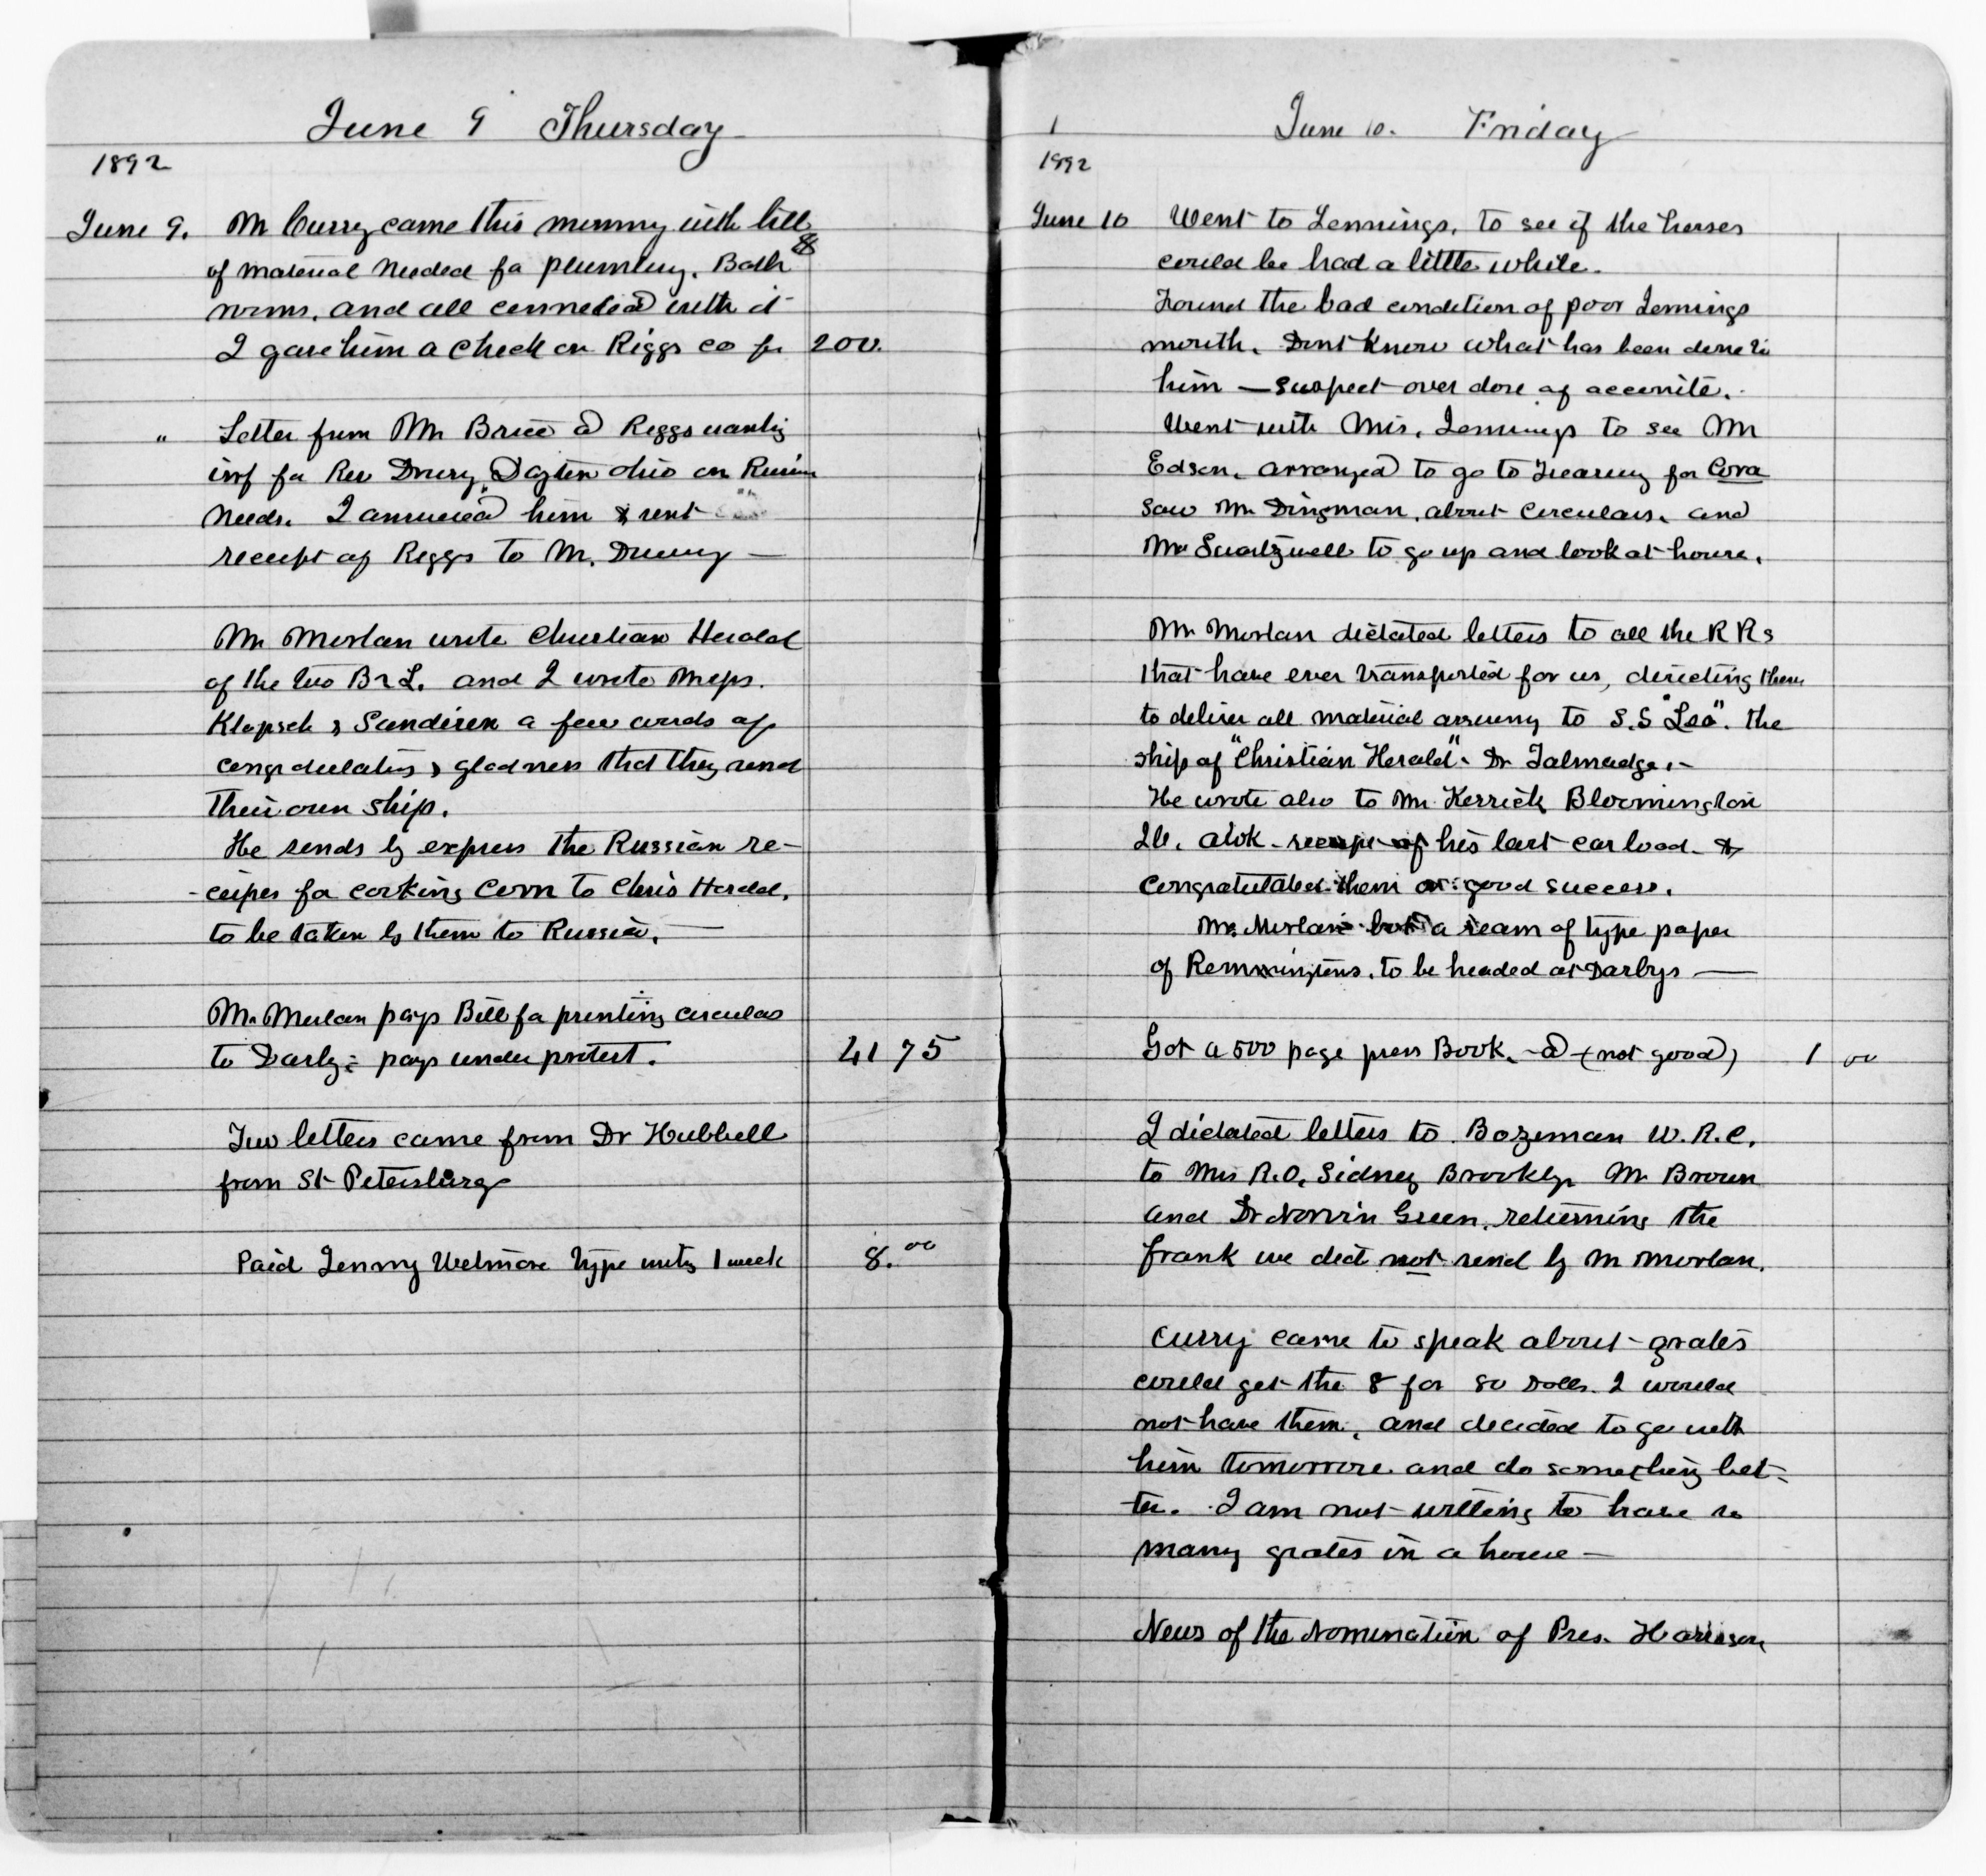 June 9 Thursday
1892
June 9. Mr Curry came this morning with bill
of material needed for plumbing. Bath &
rooms, and all connected with it
I gave him a check on Riggs co for 200.
" Letter from Mr Brice at Riggs wanting
inf for Rev Drury Dayton Ohio on Russian
needs. I answered him & sent
receipt of Riggs to Mr. Drury —
Mr Morlan wrote Christian Herald
of the two B & L. and I wrote Messrs.
Klopsch & Sandison a few words of
congratulation & gladness that they send
their own ship.
He sends by express the Russian re-
-ceipes for cooking corn to Chris Herald,
to be taken by them to Russia. —
Mr Morlan pays Bill for printing circulars
to Darby: pays under protest. 41 75
Two letters came from Dr Hubbell
from St Petersburg
Paid Jenny Wetmore type writing 1 week 8.00
1 June 10. Friday
1892
June 10 Went to Lennings, to see if the horses
could be had a little while.
Found the bad condition of poor Lennings
mouth. Dont know what has been done to
him — suspect over dose of acconite.
Went with Mrs. Lennings to see Mr
Edson, arranged to go to Treasury for Cora
saw Mr Dingman, about circulars, and
Mr Swartzwell to go up and look at house.
Mr Morlan dictated letters to all the R Rs
that have ever transported for us, directing them
to deliver all material arriving to S.S "Leo". the
ship of "Christian Herald". Dr Talmadge. -
He wrote also to Mr Kerrick Bloomington
Ill. acok. receipt of his last car load - &
congratulated them on good success.
Mr. Morlan bot a ream of type paper
of Remmingtons, to be headed at Darbys —
Got a 500 page press Book. - at - (not good) 1 00
I dictated letters to Bozeman W. R. C.
to Mrs R. O. Sidney Brooklyn Mr Brown
and Dr Norvin Green, returning the
frank we did not send by Mr Morlan.
Curry came to speak about grates
could get the 8 for 80 Dolls. I would
not have them, and decided to go with
him tomorrow and do something bet-
ter. I am not willing to have so
many grates in a house —
News of the Nomination of Pres. Harrison